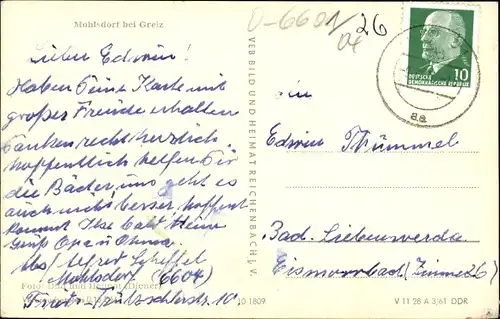 Mohlsdorf bei Greiz
D-6601/04 26
Lieber Edwin!
Haben Deine Karte mit
großer Freude erhalten
danken recht herzlich
hoffentlich helfen Dir
die Bäder, uns geht es
auch nicht besser hoffent
kommt Ilse bald kleine
Gruß Opa u Oma
Abs/Alfred Scheffel
Mohlsdorf (6604)
Fritz-Schlosserstr. 10
Foto: Bild und Heimat (Diener)
10 1809
VEB BILD UND HEIMAT REICHENBACH i. V.
DEUTSCHE
DEMOKRATISCHE REPUBLIK
10
aa
Edwin Thümmel
Bad-Liebenwerda
Eismoorbad (Zimmer 26)
V 11 28 A 3/61 DDR